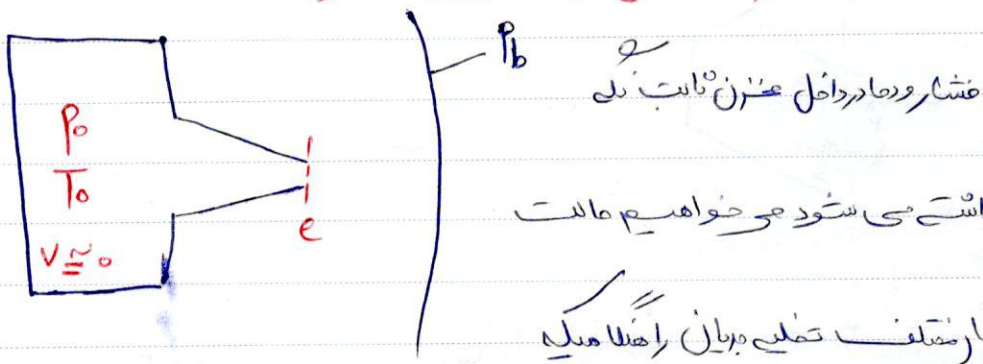 P₀
T₀
V ≅ 0
e
P_b
فشار و دما در داخل مخزن ثابت نگه
اشته می شود می خواهیم حالت
مختلف تخلیه جریان را